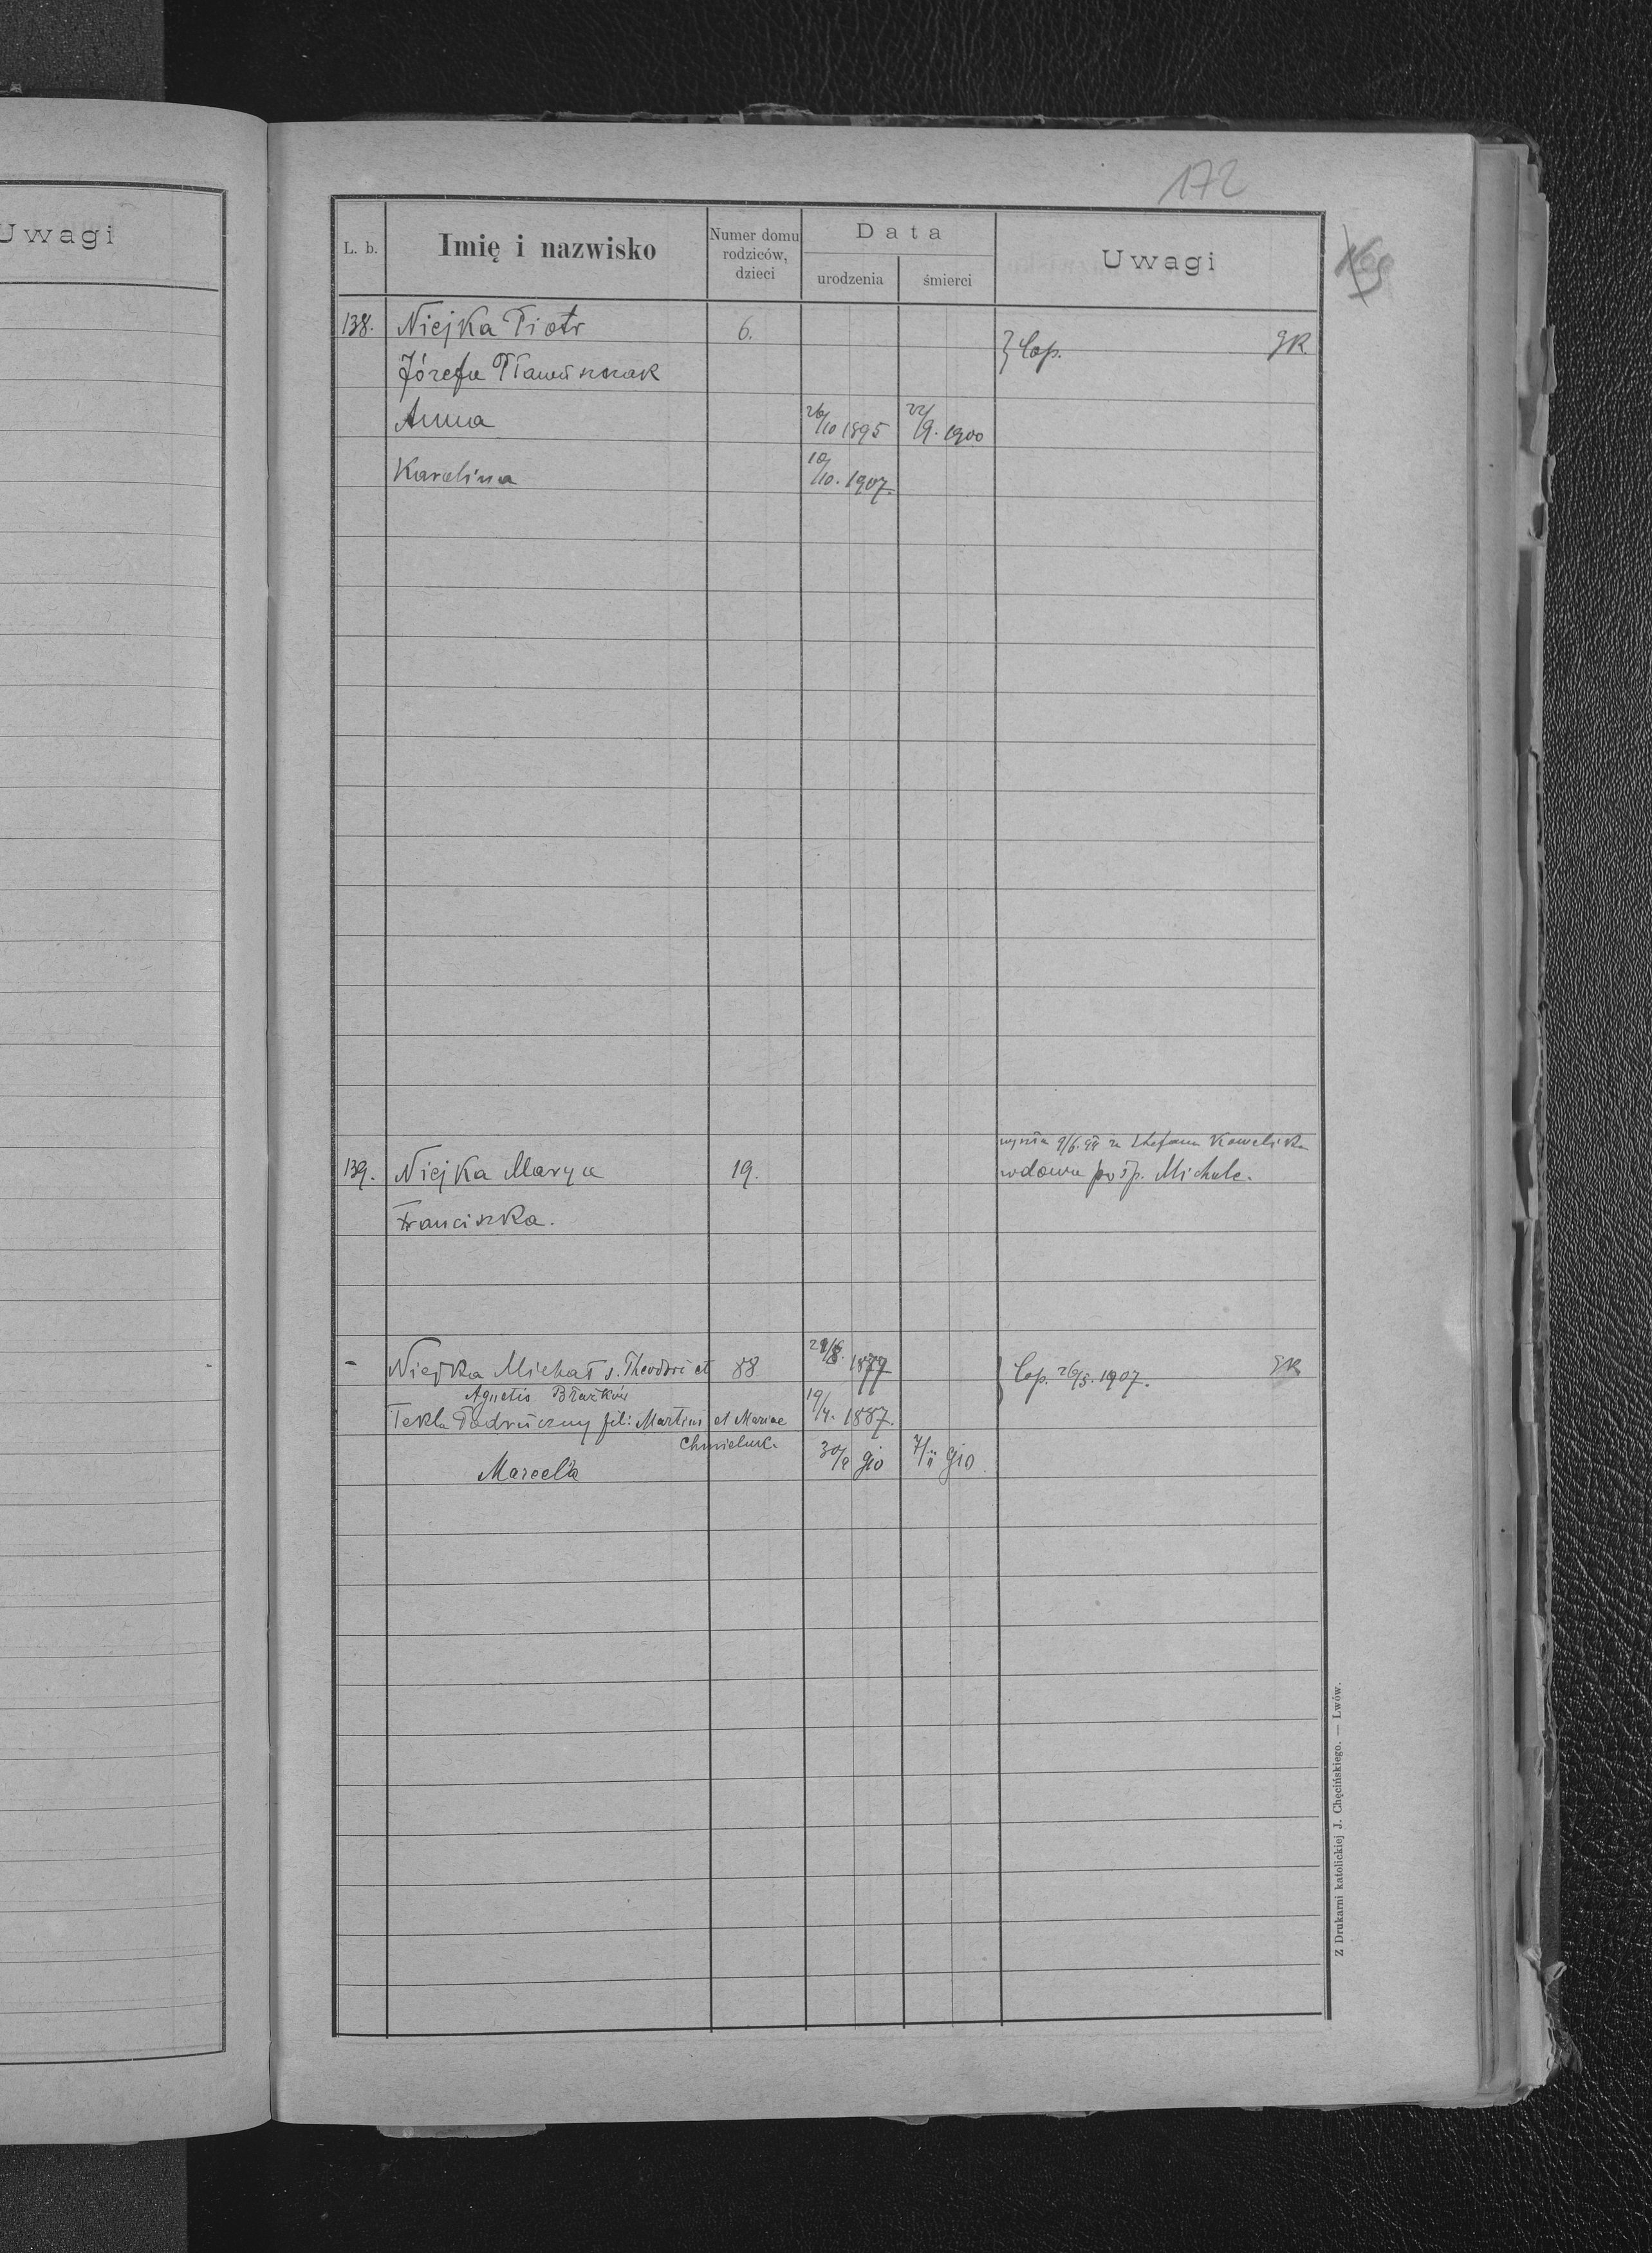 Uwagi
172
L. b.
Imię i nazwisko
Numer domu rodziców, dzieci
Data
urodzenia
śmierci
Uwagi
138. Niejka Piotr 6. } Cop. GR
Józefa
Anna 26/10 1895 22/9. 1900
Karolina 10/10. 1907.
9/6. za Stefana Kowalika
139. Niejka Marya 19. wdowa po śp. Michale.
Franciszka.
- Niejka Michał s. Theodori et 88 1877 } Cop. 26/5. 1907. GR
Agnetis Błażków
Tekla Podruczny fil: Martini et Mariae 19/4. 1887.
Marcela 30/ 910 7/11 910
Z Drukarni katolickiej J. Chęcińskiego. — Lwów.